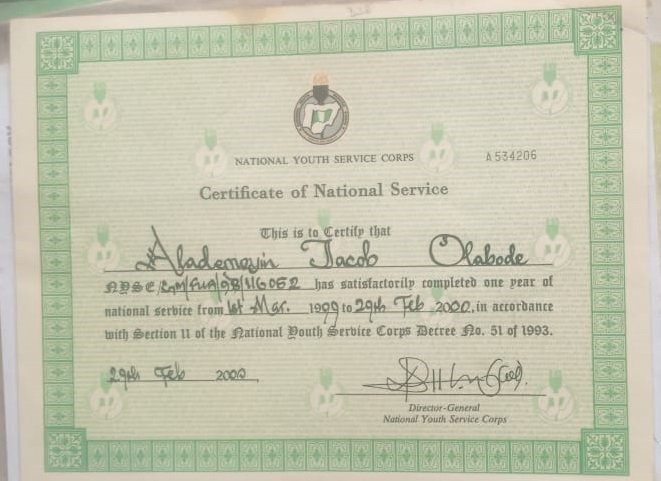 NATIONAL YOUTH SERVICE CORPS
A 534206
Certificate of National Service
This is to Certify that
Alademoyin Jacob Olabode
NYSC has satisfactorily completed one year of
national service from 1st Mar. 1999 to 29th Feb 2000, in accordance
with Section 11 of the National Youth Service Corps Decree No. 51 of 1993.
29th Feb 2000
Director-General
National Youth Service Corps